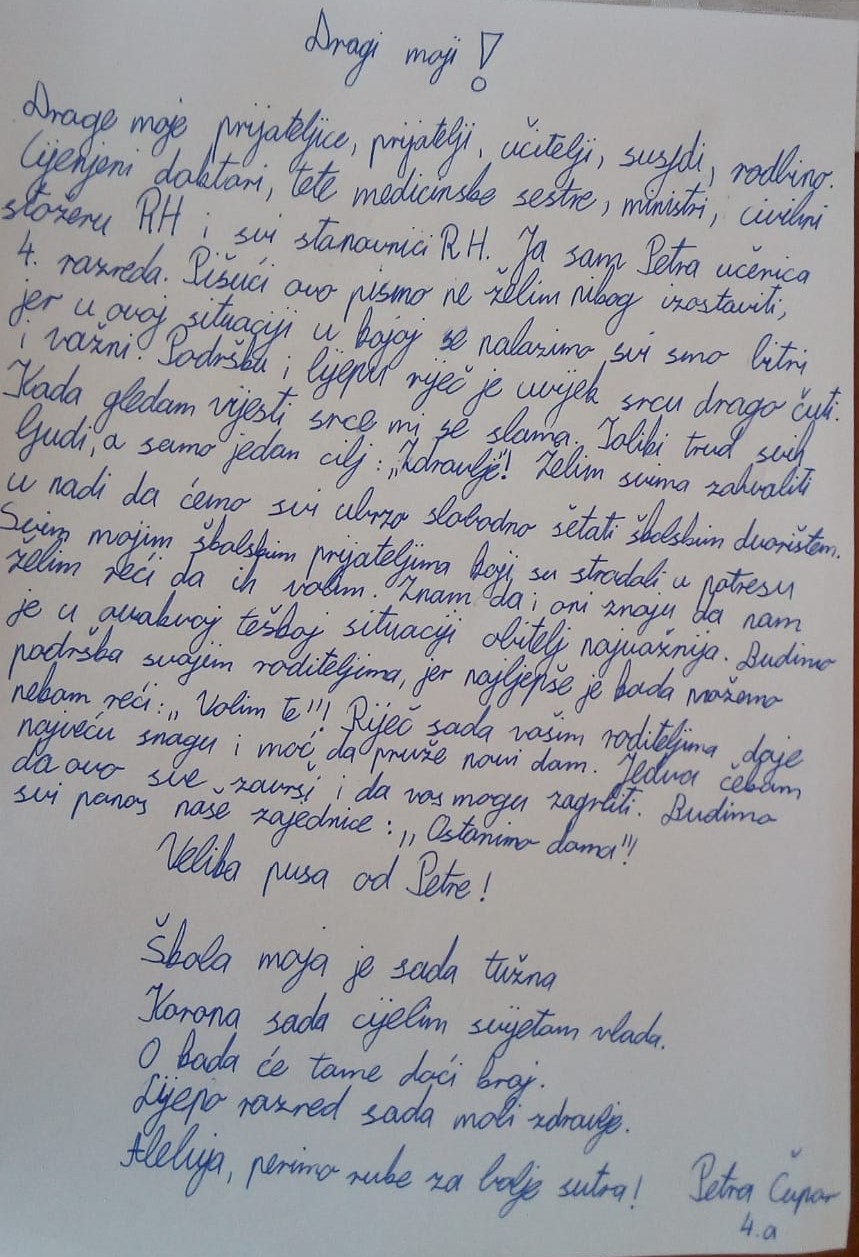 Dragi moji!
Drage moje prijateljice, prijatelji, učitelji, susjdi, rodbino.
Cijenjeni doktori, tete medicinske sestre, ministri, civilni
stožeru RH i svi stanovnici RH. Ja sam Petra učenica
4. razreda. Pišući ovo pismo ne želim nikog izostaviti,
jer u ovoj situaciji u kojoj se nalazimo svi smo bitni
i važni. Podršku i lijepu riječ je uvijek srcu drago čuti.
Kada gledam vijesti srce mi se slama. Toliki trud svih
ljudi, a samo jedan cilj: „Zdravlje"! Želim svima zahvaliti
u nadi da ćemo svi ubrzo slobodno šetati školskim dvorištem.
Svim mojim školskim prijateljima koji su stradali u potresu
želim reći da ih volim. Znam da i oni znaju da nam
je u ovakvoj teškoj situaciji obitelj najvažnija. Budimo
podrška svojim roditeljima, jer najljepše je kada možemo
nekom reći: „Volim te"! Riječ sada vašim roditeljima daje
najveću snagu i moć da pruže novi dom. Jedva čekam
da ovo sve završi i da vas mogu zagrliti. Budimo
svi ponos naše zajednice: „Ostanimo doma"!
Velika pusa od Petre!
Škola moja je sada tužna
Korona sada cijelim svijetom vlada.
O kada će tome doći kraj.
Lijepo razred sada moli zdravlje.
Aleluja, perimo ruke za bolje sutra!
Petra Čupor
4.a